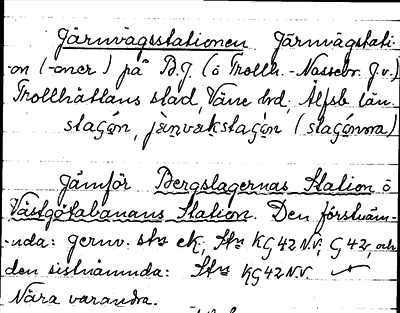 Järnvägsstationen Järnvägstati-
-on (-oner) på B.J. (ö Trollh.-Nossebr. J.v.)
Trollhättans stad, Väne hd, Älfsb. län.
stac̨ón, jèn̨vakstac̨ón (stac̨óno̱ra)
Jämför Bergslagernas Station ö
Västgötabanans Station. Den förstnäm-
-nda: gemv. stn ek, Stn KG42NV, G42, och
den sistnämnda: Stn KG42NV
Nära varandra.